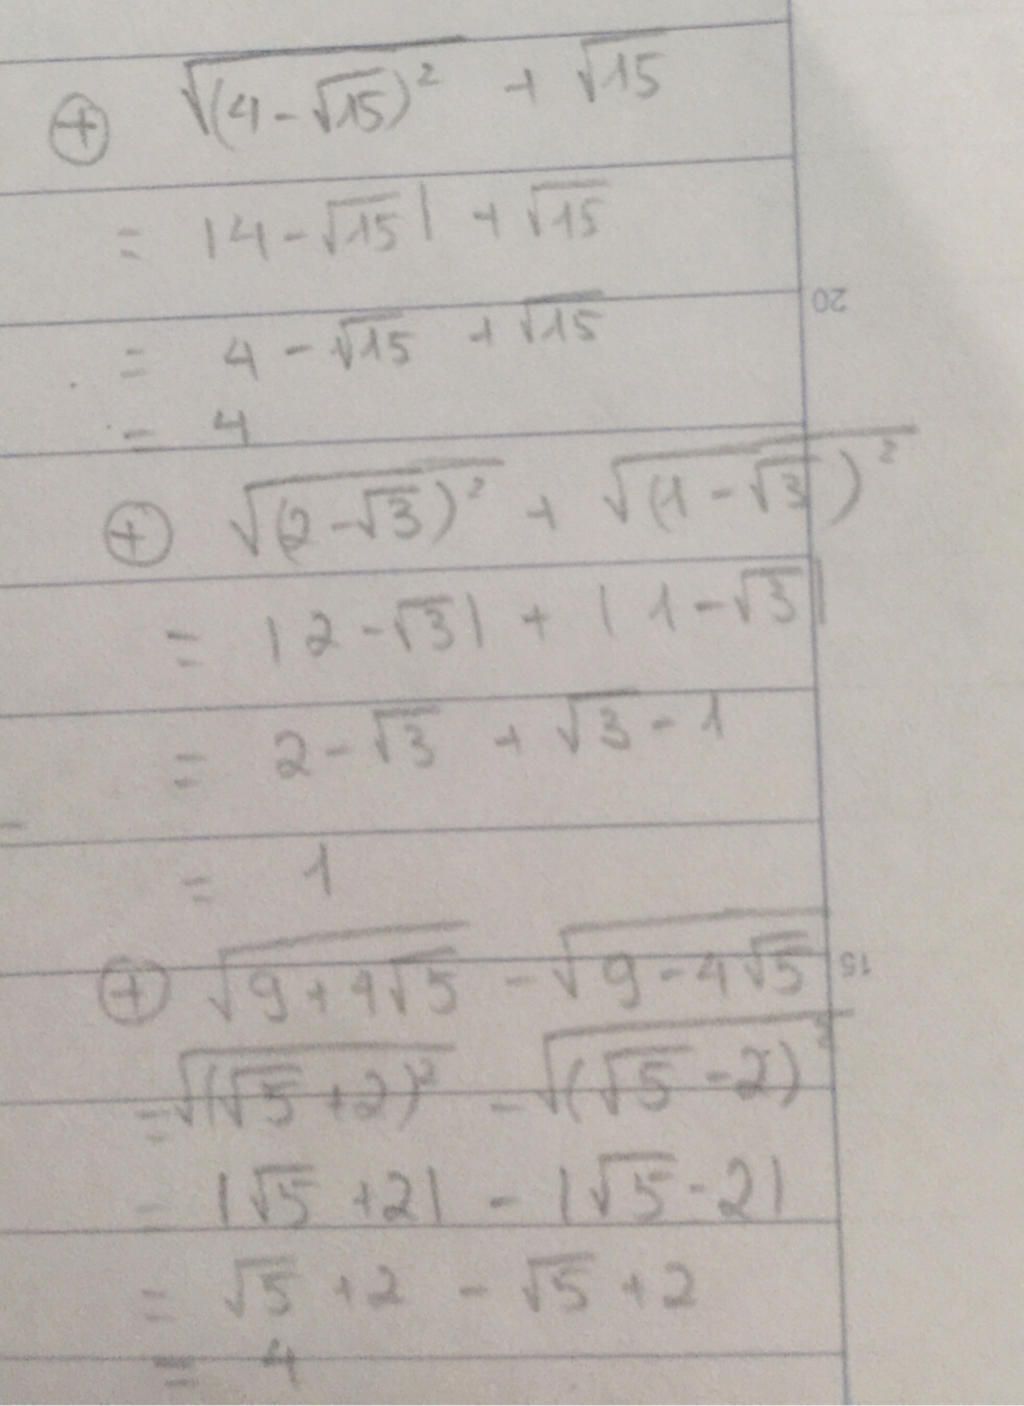 ⊕ √(4-√15)² + √15
= |4-√15| + √15
20
= 4 - √15 + √15
= 4
⊕ √(2-√3)² + √(1-√3)²
= |2-√3| + |1-√3|
= 2-√3 + √3-1
= 1
⊕ √9+4√5 - √9-4√5
15
= √(√5+2)² - √(√5-2)²
= |√5+2| - |√5-2|
= √5+2 - √5+2
= 4